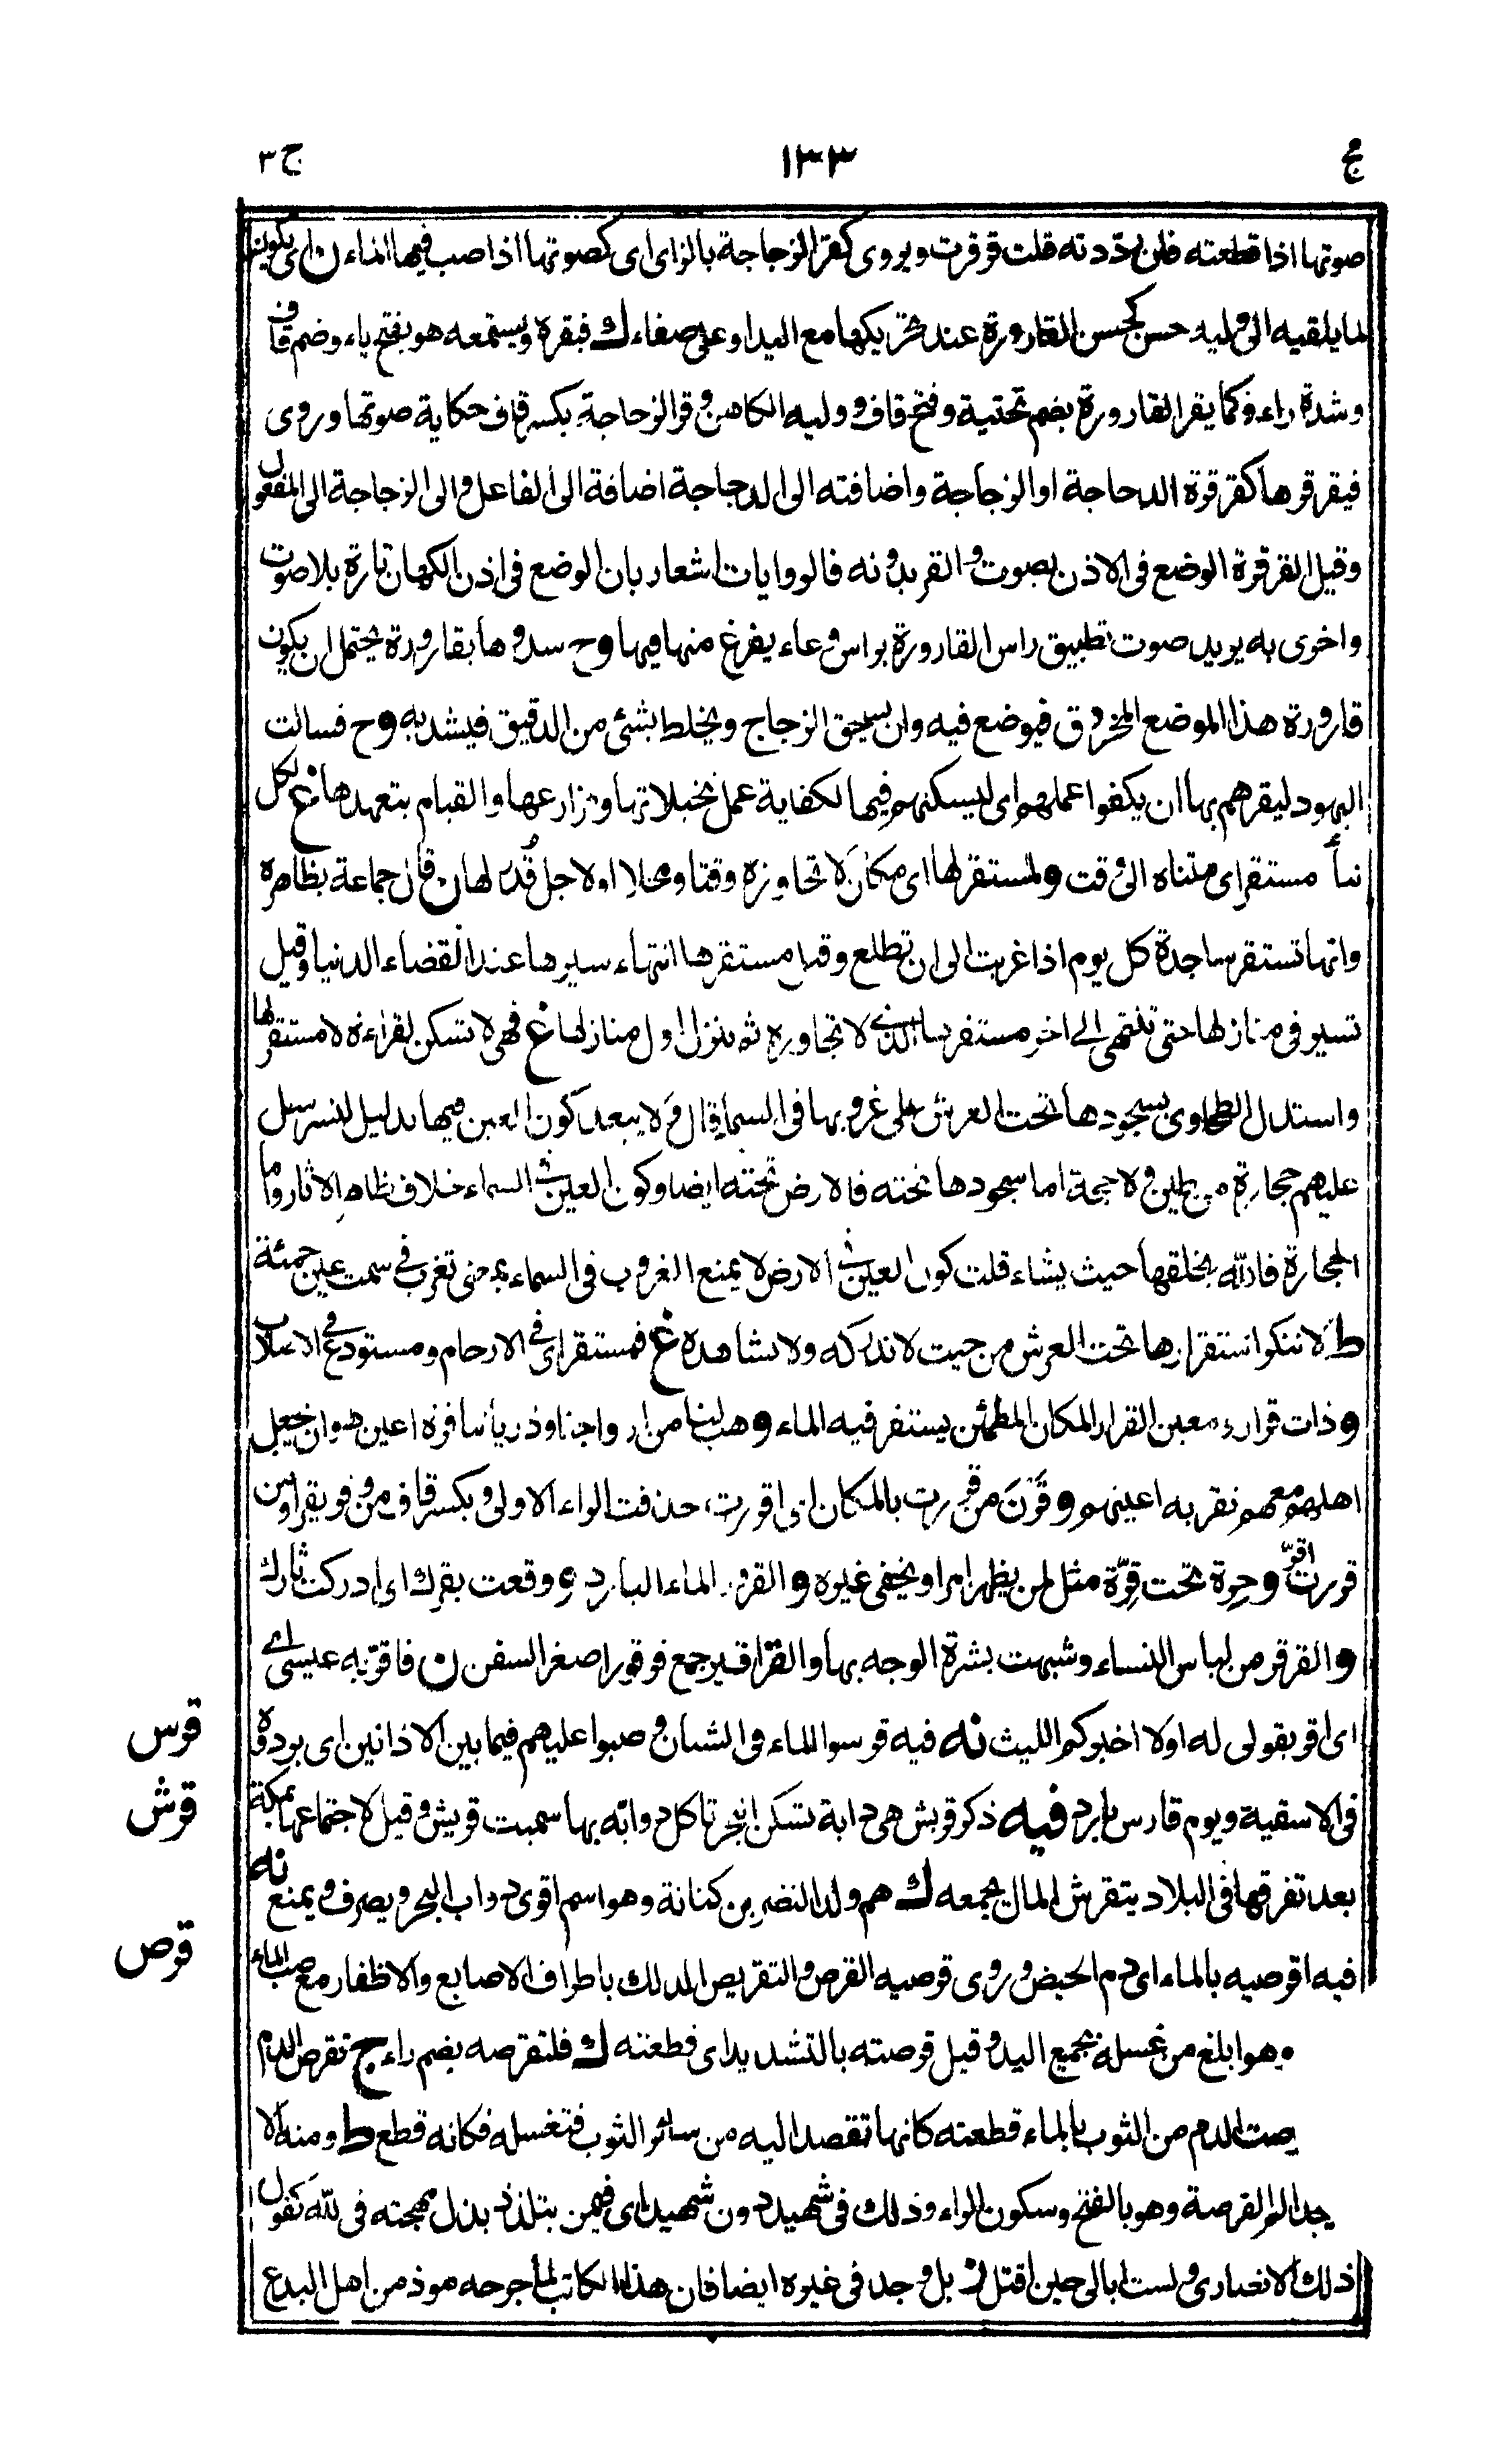 مج ١٣٣ ج ٣
صوتها اذا قطعته فان رددته قلت قرقرت ويروى كقز الزجاجة بالزاى اى كصوتها اذا صب فيها الماء ن اى يكون
لما يلقيه الى وليه حس كحس القارورة عند تحريكها مع اليد او على صفاء ك فيقره ويستمعه هو بفتح ياء وضم قاف
وشدة راء وكما يقر القارورة بضم تحتية وفتح قاف ووليه الكاهن وقر الزجاجة بكسر قاف حكاية صوتها وروى
فيقرقرها كقرقرة الدجاجة او الزجاجة واضافته الى الدجاجة اضافة الى الفاعل والى الزجاجة الى المفعول
وقيل القرقرة الوضع فى الاذن بصوت والقر بدونه فالروايات اشعار بان الوضع فى اذن الكهان تارة بلا صوت
واخرى به يريد صوت تطبيق راس القارورة براس وعاء يفرغ منها فيها وح سدوها بقارورة يحتمل ان يكون
قارورة هذا الموضع المخروق فيوضع فيه وان يسحق الزجاج ويخلط بشئ من الدقيق فيشد به وح فسالت
اليهود ليقرهم بها ان يكفوا عملهم اى ليسكنهم فيها لكفاية عمل نخيلاتها ومزارعها والقيام بتعهدها غ لكل
نبأ مستقر اى متناه الى وقت ولمستقر لها اى مكان لا تجاوزه وقتا ومحلا او لاجل قدر لها ن قال جماعة بظاهره
وانها تستقر ساجدة كل يوم اذا غربت الى ان تطلع وقيل مستقرها انتهاء سيرها عند انقضاء الدنيا وقيل
تسير فى منازلها حتى تنتهى الى اخر مستقرها الذى لا تجاوزه ثم ينزل اول منازلها غ فهى لا تسكن لقراءة لا مستقر لها
واستدل الطحاوى بسجودها تحت العرش على غروبها فى السماء قال ولا يبعد كون العين فيها بدليل لنرسل
عليهم حجارة من طين ولا حجة اما سجودها تحته فالارض تحته ايضا وكون العين فى السماء خلاف ظاهر الاثار واما
الحجارة فالله يخلقها حيث يشاء قلت كون العين فى الارض لا يمنع الغروب فى السماء بمعنى تغرب فى سمت عين حمئة
ط لا ننكر استقرارها تحت العرش من حيث لا ندركه ولا نشاهده غ فمستقر اى فى الارحام ومستودع فى الاصلاب
و ذات قرار ومعين القرار المكان المطمئن يستقر فيه الماء وهب لنا من ازواجنا وذرياتنا قرة اعين هو ان يجعل
اهلهم معهم نقر به اعينهم وقرن من قررت بالمكان اى اقررن حذفت الراء الاولى وبكسر قاف من وقر يقر او من
قررت اقر وحرة تحت قرة مثل لمن يظهر امرا ويخفى غيره والقر الماء البارد ووقعت بقرك اى ادركت ثارك
والقرقر من لباس النساء وشبهت بشرة الوجه بها والقراقير جمع قرقور اصغر السفن ن فاقر به عيسى اى
اى اقر بقولى له اولا اخبركم الليث نه فيه قرسوا الماء فى الشنان وصبوا عليهم فيما بين الاذانين اى بردوه
فى الاسقية ويوم قارس بارد فيه ذكر قريش هى دابة تسكن البحر تاكل دوابه بها سميت قريش وقيل لاجتماعها بمكة
بعد تفرقها فى البلاد يتقرش المال يجمعه ك هم ولد النضر بن كنانة وهو اسم اقوى دواب البحر ويصرف ويمنع نه
فيه اقرصيه بالماء اى دم الحيض وروى قرصيه القرص والتقريص الدلك باطراف الاصابع والاظفار مع صب الماء
وهو ابلغ من غسله بجميع اليد وقيل قرصته بالتشديد اى قطعته ك فلتقرصه بضم راء ج تقرص الدم
الدم من الثوب بالماء قطعته كانها تقصد اليه من سائر الثوب فتغسله فكانه قطع ط ومنه الا
الم القرصة وهو بالفتح وسكون الراء وذلك فى شهيد دون شهيد اى فيمن يتلذذ ببذل مهجته فى لله كقول
ذلك الانصارى ولست ابالى حين اقتل بل وجد فى غيره ايضا فان هذا الكاتب لما جرحه موذ من اهل البدع
قرس
قرش
قرص